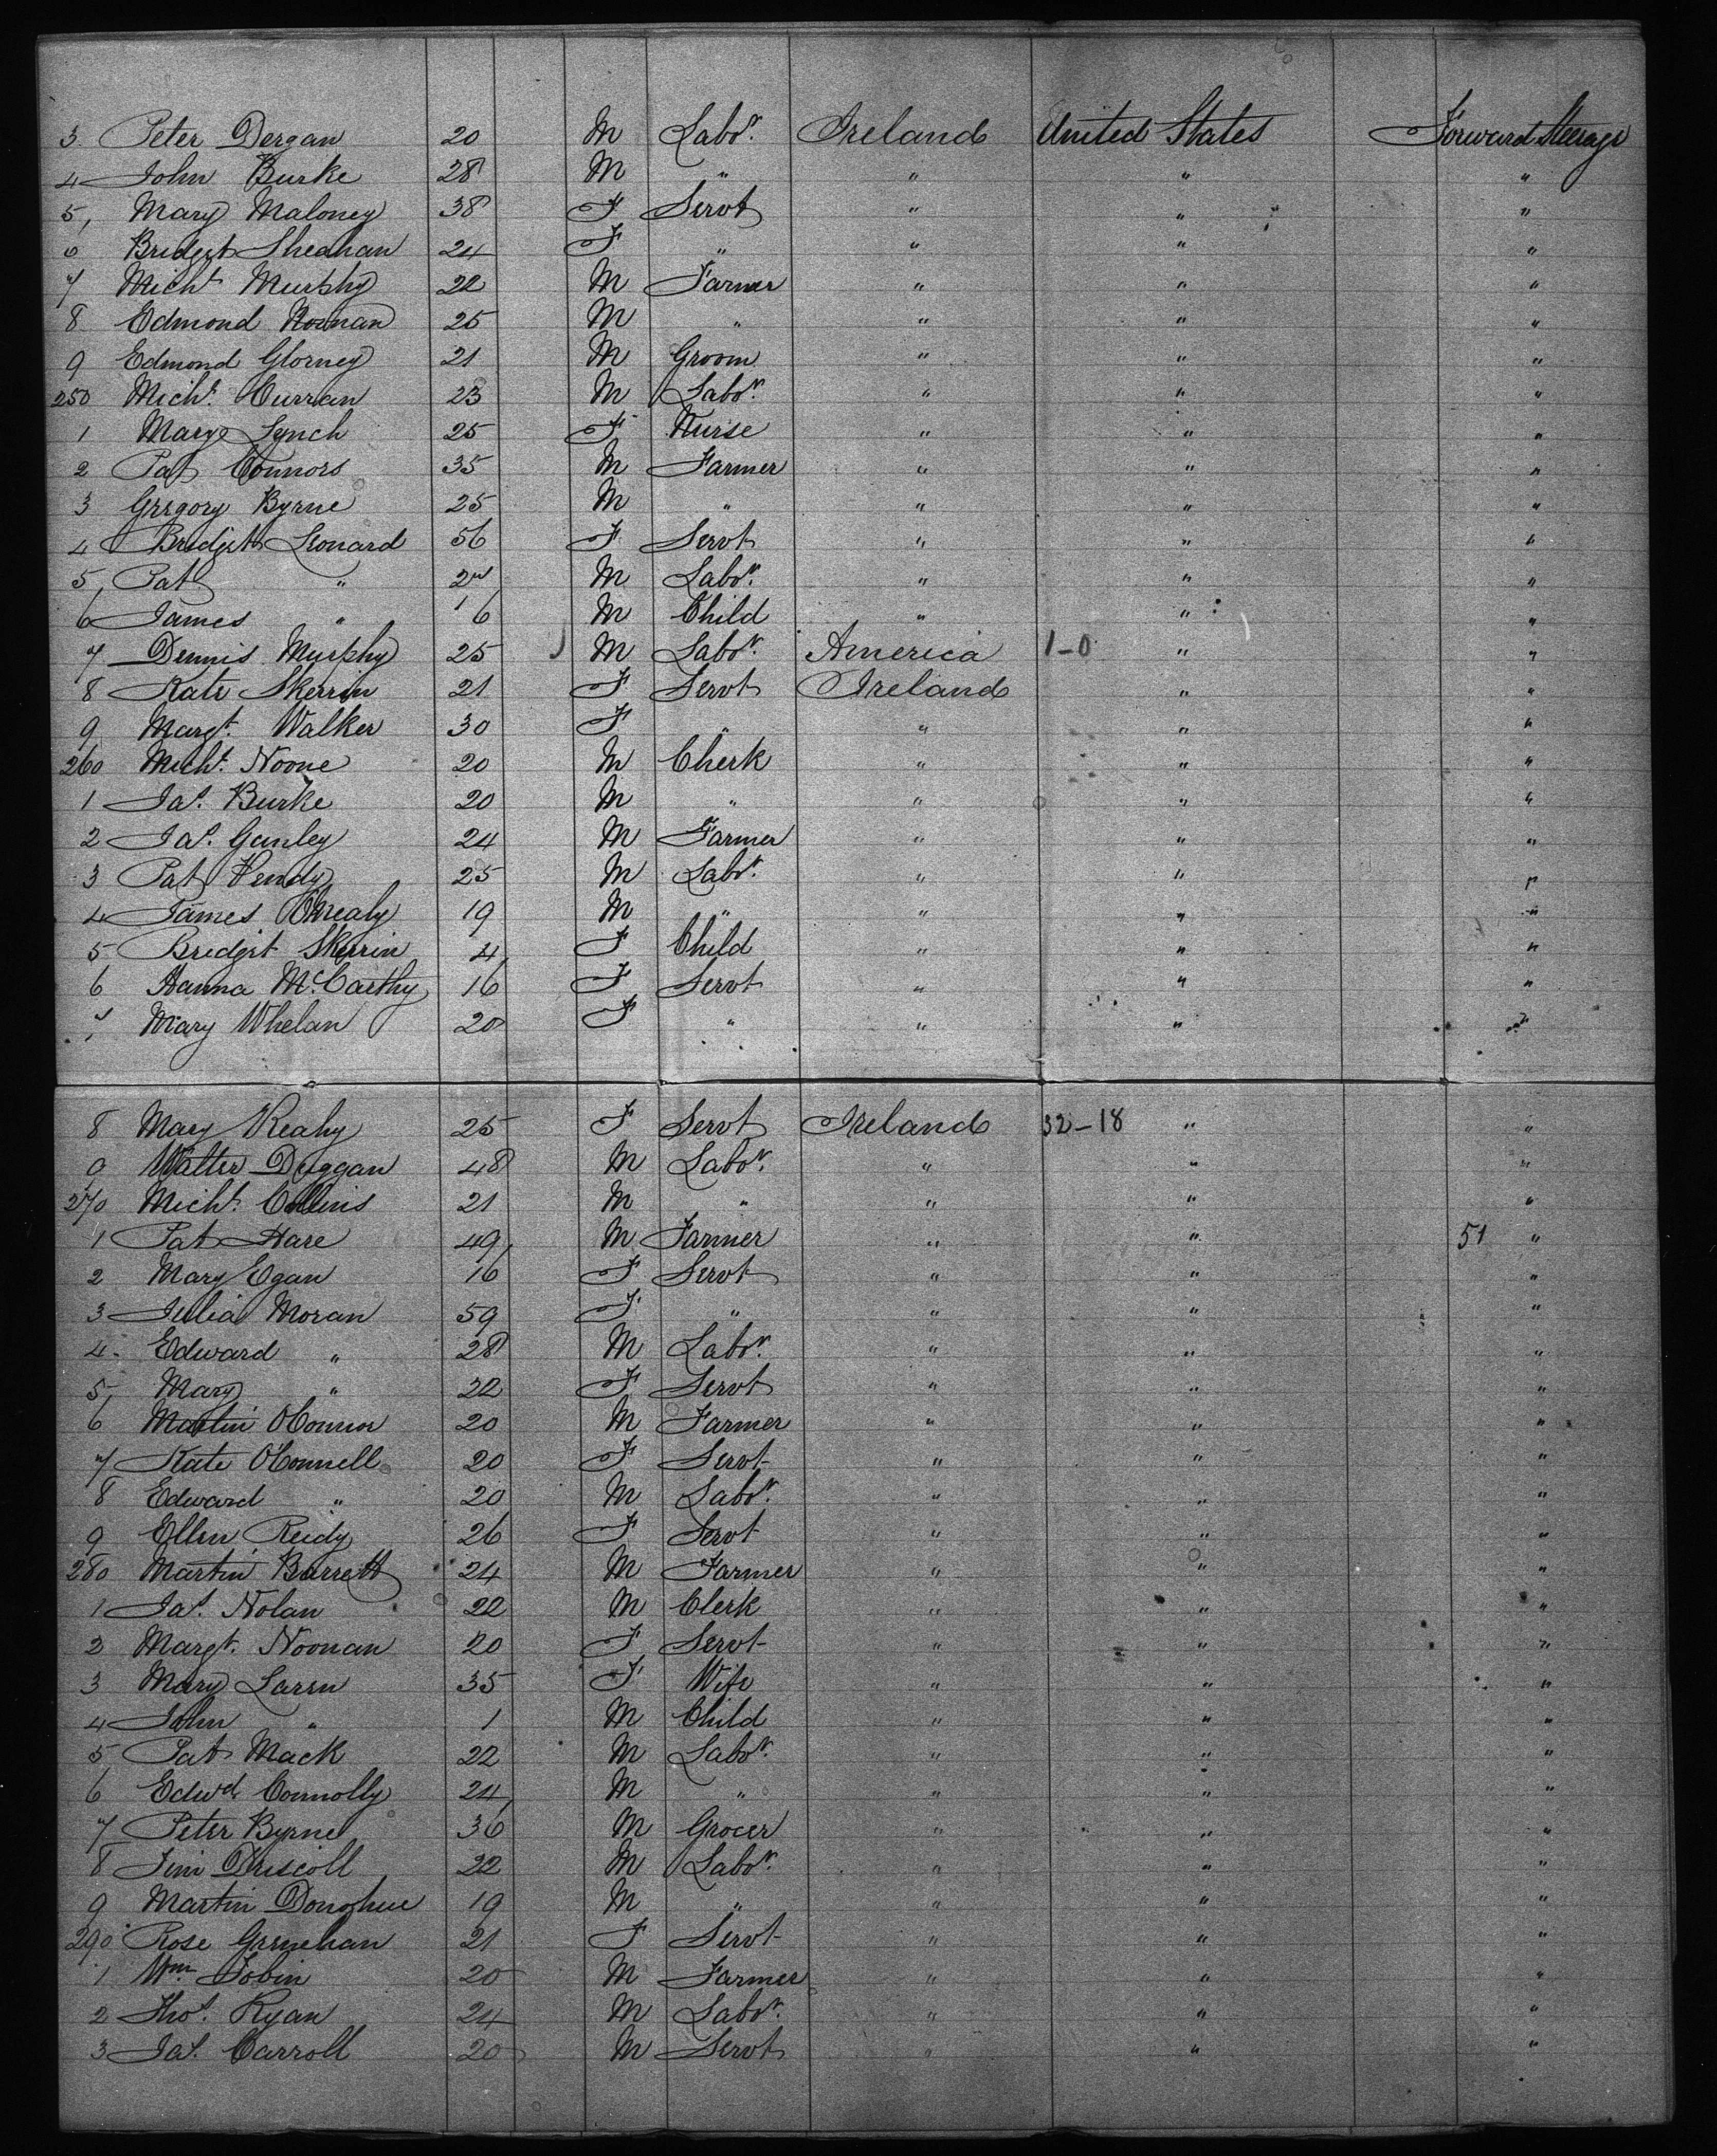 3 Peter Dergan 20 M Labr. Ireland United States Forward Steerage
4 John Burke 28 M " " " "
5, Mary Maloney 38 F Servt " " "
6 Bridget Sheahan 24 F " " " "
7 Michl Murphy 22 M Farmer " " "
8 Edmond 25 M " " " "
9 Edmond Glorney 21 M Groom " " "
250 Michl. Curran 23 M Labr. " " "
1 Mary Lynch 25 F Nurse " " "
2 Pat Connors 35 M Farmer " " "
3 Gregory Byrne 25 M " " " "
4 Bridget Leonard 56 F Servt " " "
5, Pat " 27 M Labr. " " "
6 James " 6 M Child " " "
7 Dennis Murphy 25 M Labr. America 1-0 " "
8 Kate Skerrin 21 F Servt Ireland " "
9 Margt. Walker 30 F " " " "
260 Michl. Noone 20 M Cherk " " "
1 Jas. Burke 20 M " " " "
2 Jas. Ganley 24 M Farmer " " "
3 Pat 25 M Labr. " " "
4 James 19 M " " " "
5 Bridget Skerrin 4 F Child " " "
6 Hanna McCarthy 16 F Servt " " "
7 Mary Whelan 20 F " " " "
8 Mary Keahy 25 F Servt Ireland 32-18 " "
9 Walter Duggan 48 M Labr. " " "
270 Michl. Collins 21 M " " " "
1 Pat Hare 49 M Farmer " " 51 "
2 Mary Egan 16 F Servt " " "
3 Julia Moran 59 F " " " "
4 Edward " 28 M Labr. " " "
5, Mary " 22 F Servt " " "
6 Martin OConnor 20 M Farmer " " "
7 Kate OConnell 20 F Servt " " "
8 Edward " 20 M Labr. " " "
9 Ellen Reidy 26 F Servt " " "
280 Martin Barrett 24 M Farmer " " "
1 Jas. Nolan 22 M Clerk " " "
2 Margt. Noonan 20 F Servt " " "
3 Mary Laren 35 F Wife " " "
4 John " 1 M Child " " "
5 Pat Mack 22 M Labr. " " "
6 Edwd Connolly 24 M " " " "
7 Peter Byrne 36 M Grocer " " "
8 Jim Driscoll 22 M Labr. " " "
9 Martin Donohue 19 M " " " "
290 Rose 21 F Servt " " "
1 Wm. Tobin 20 M Farmer " " "
2 Thos. Ryan 24 M Labr. " " "
3 Jas. Carroll 20 M Servt " " "